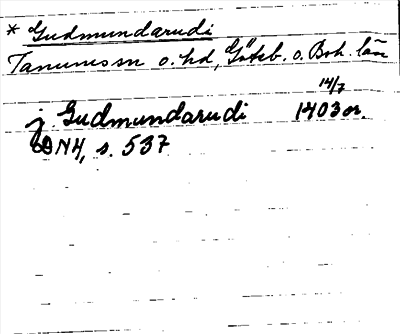 * Gudmundarudi
Tanums sn o. hd, Göteb. o. Boh. län
14/7
j Gudmundarudi 1403 or.
DN4, s. 537